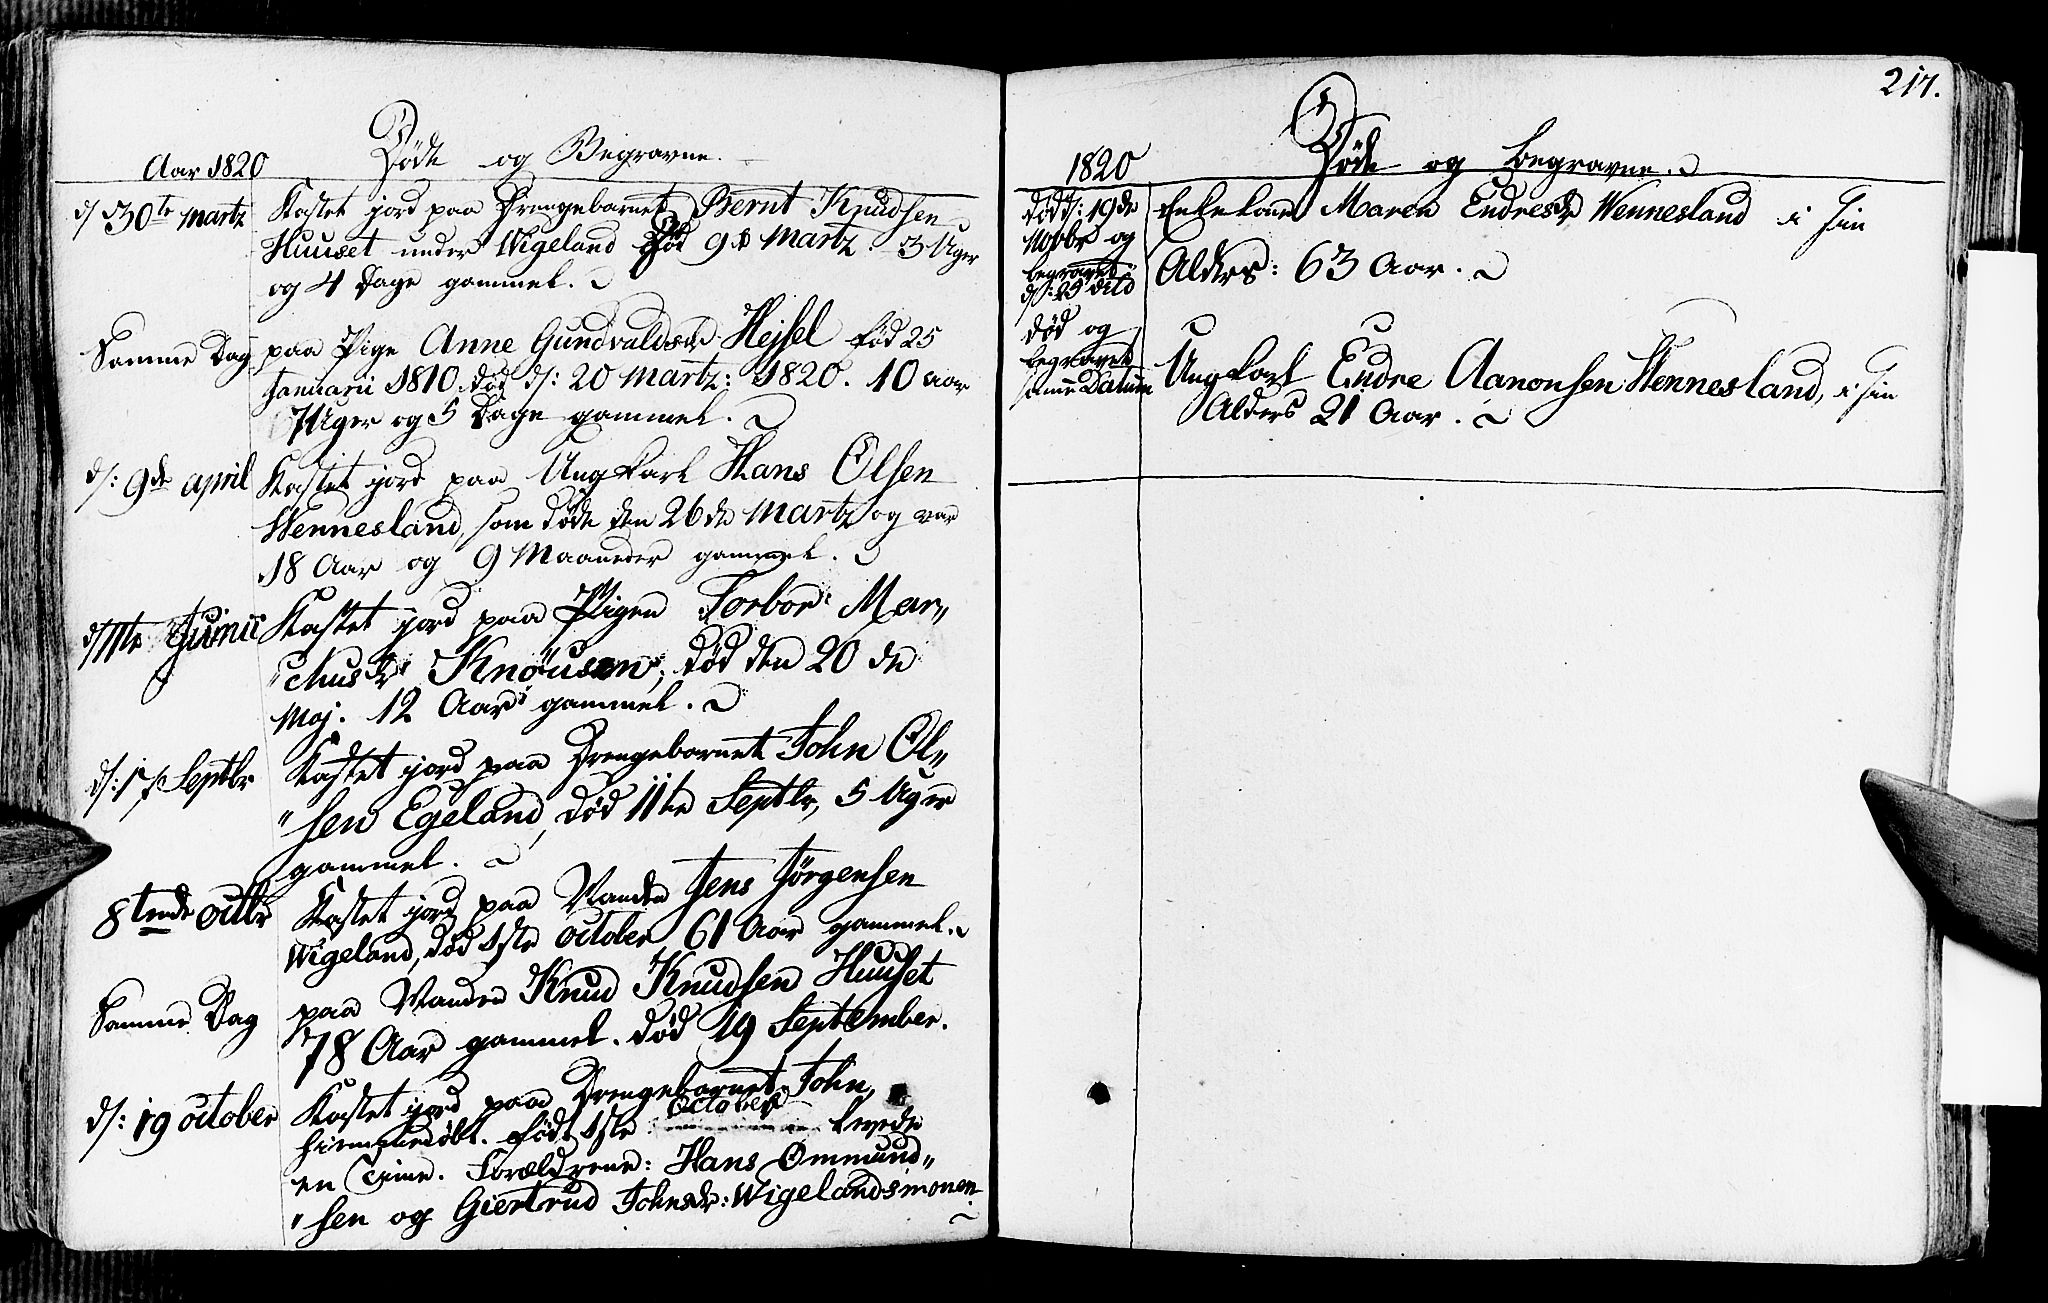 Aar 1820
Døde og Begravne.
d/ 30te Martz
Kastet jord paa Drengebarnet Bernt Knudsen
Huuset under Wigeland Død 9de Martz. 3 Uger
og 4 Dage gammel.
Samme Dag
paa Pige Anne Gundvaldsdr Hejsel fød 25
Januarii 1810. død d/: 20 Martz: 1820. 10 aar
7 Uger og 5 Dage gammel.
d/: 9de april
Kastet jord paa Ungkarl Hans Olsen
Wennesland, som døde den 26de Martz og var
18 Aar og 9 Maaneder gammel.
Junii
Kastet jord paa Pigen Torbor Mar„
„chusdr Knousen, død den 20de
Maj. 12 Aar gammel.
d/: 17 Septbr
Kastet jord paa Drengebarnet John Ol„
„sen Egeland, død 11te Septbr, 5 Uger
gammel.
8tende octbr
Kastet jord paa Manden Jens Jørgensen
Wigeland, død 1ste october 61 Aar gammel.
Samme Dag
paa Manden Knud Knudsen Huuset
78 Aar gammel. død 19 September.
d/: 19 october
Kastet jord paa Drengebarnet John,
hiemmedøbt. født 1ste October levede
en Time. Forældrene: Hans Ommund„
„sen og Giertrud Johnsdr: Wigelandsmonen
217.
1820
Døde og begravne.
død d/: 19de
Novbr og
begravet
d/: 25 dito
Enkekone Maren Endresdr Wennesland i sin
Alders: 63 Aar.
død og
begravet
samme Datum
Ungkarl Endre Aanonsen Wennesland, i sin
Alders 21 Aar.